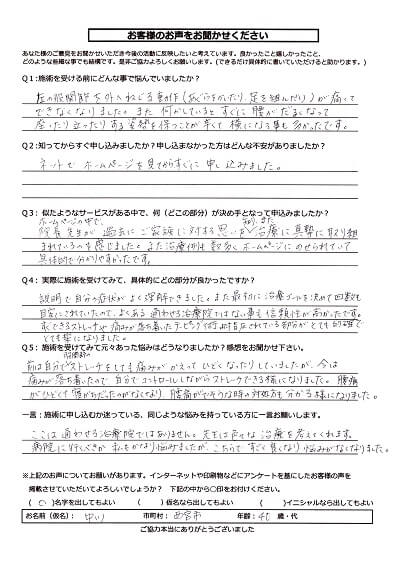 お客様のお声をお聞かせください
あなた様のご意見をお聞かせいただき今後の活動に反映したいと考えています。良かったこと嬉しかったこと、
どのような些細な事でも結構です。是非ご協力よろしくお願いします。(できるだけ具体的に書いていただけると助かります。)
Q1:施術を受ける前にどんな事で悩んでいましたか?
左の股関節を外へねじる動作(あぐらをかいたり、足を組んだり)が痛くて
できなくなりました。また何かしていると すぐに腰がだるくなって
座ったり立ったり ある姿勢を保つことが辛くて 横になる事も多かったです。
Q2:知ってからすぐ申し込みましたか?申し込まなかった方はどんな不安がありましたか?
ネットで ホームページを見てからすぐに申し込みました。
Q3:似たようなサービスがある中で、何(どこの部分)が決め手となって申込みましたか?
ホームページの中で、
院長先生が過去に ご苦労
治療に真摯に取り組
まれているのを感じました。また治療例も数多くホームページにのせられていて
具体的で分かりやすかったです。
Q4:実際に施術を受けてみて、具体的にどの部分が良かったですか?
説明で自分の症状がよく理解できました。また最初に治療ゴールを決めて回数も
目安にされていたので、よくある通わせる治療院ではない事も信頼性が高かったです。
とても楽になりました。
Q5:施術を受けてみて元々あった悩みはどうなりましたか?感想をお聞かせ下さい。
股関節の
前は自分でストレッチをしても痛みが かえって ひどくなったりしていましたが、今は
痛みが落ち着いたので 自分でコントロールしながらストレッチできる様になりました。腰痛
がひどくて 寝がえりだった
腰痛がでそうな時の対処方も分かる様になりました。
一言:施術に申し込むか迷っている、同じような悩みを持っている方に一言お願いします。
ここは通わせる治療院ではありません。先生は
治療を考えてくれます。
病院に行くべきか 私もかなり悩みましたが、こちらで すごく良くなり 悩みがなくなりました。
※上記のお声についてお願いがあります。インターネットや印刷物などにアンケートを基にしたお客様の声を
掲載させていただいてよろしいでしょうか? 下記の中から〇印をお付けください。
( 〇 )名字を出してもよい ( )仮名なら出してもよい ( )イニシャルなら出してもよい
お名前(仮名): 中川 市町村: 西宮市 年齢: 40 歳・代
ご協力本当にありがとうございました